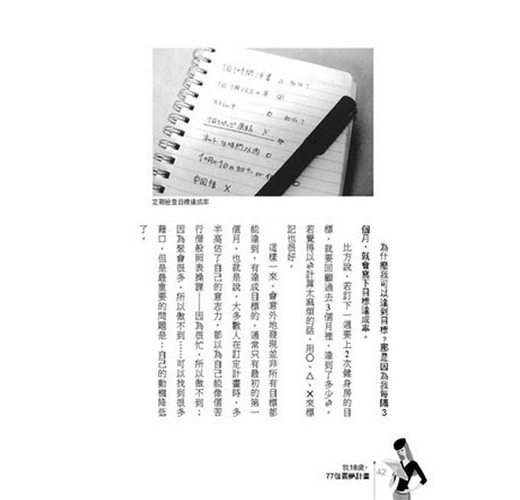 定期檢查目標達成率
為什麼我可以達到目標?那是因為我每隔3
個月,就會寫下目標達成率。
比方說,若訂下一週要上2次健身房的目
標,就要回顧過去3個月裡,達到了多少%。
若覺得以%計算太麻煩的話,用○、△、×來標
記也很好。
這樣一來,會意外地發現並非所有目標都
能達到,有達成目標的,通常只有最初的第一
個月。也就是說,大多數人在訂定計畫時,多
半高估了自己的意志力,都以為自己能像個苦
行僧般照表操課——因為很忙,所以做不到;
因為聚會很多,所以做不到……可以找到很多
藉口,但是最重要的問題是:自己的動機降低
了。
我18歲,
77個圓夢計畫
42